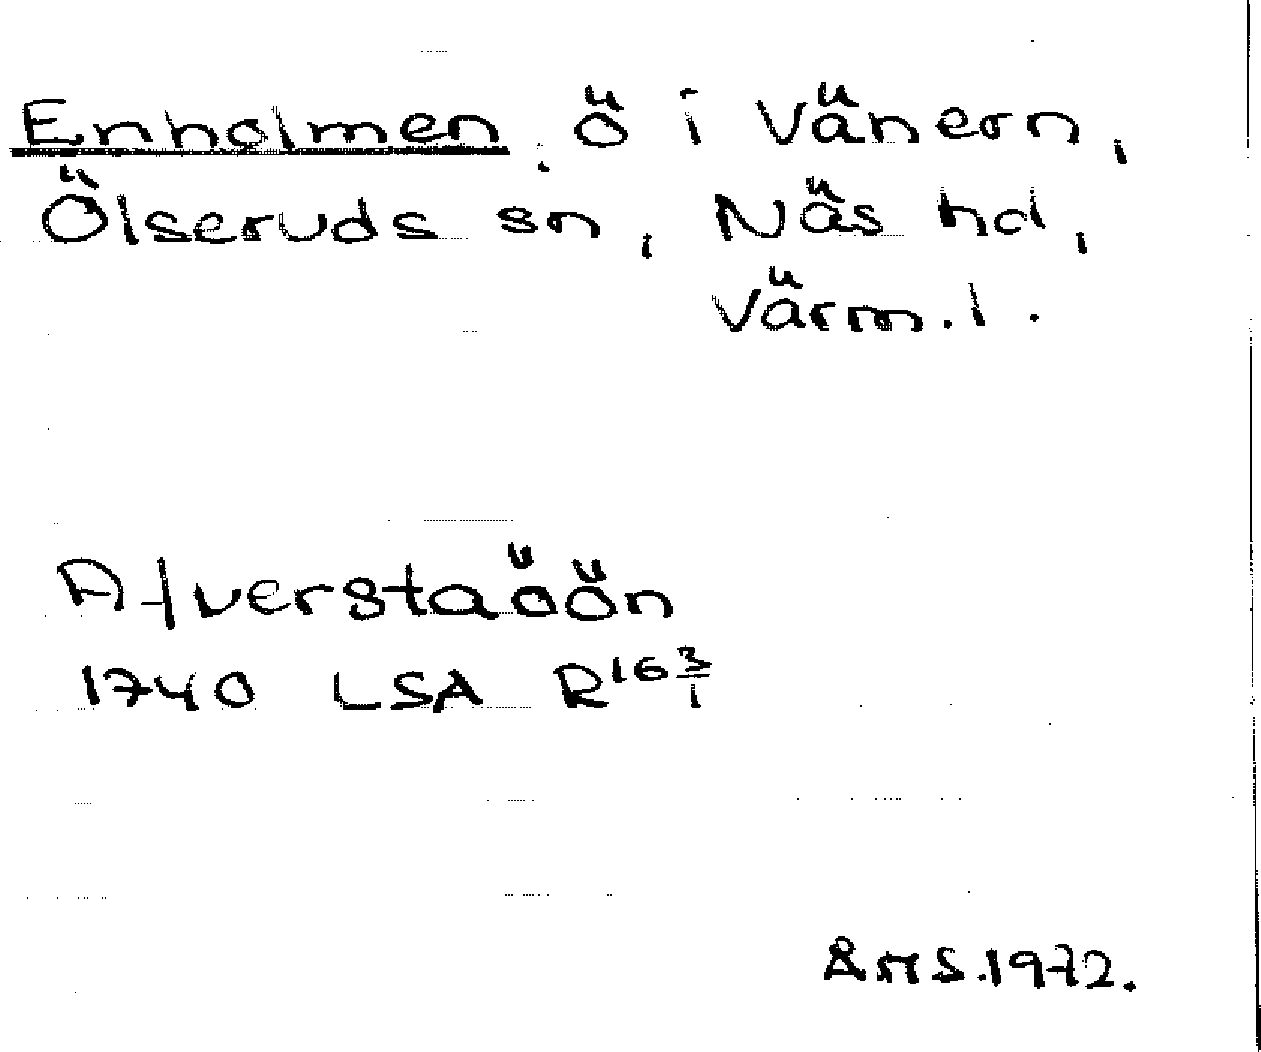 Enholmen, ö i Vänern,
Ölseruds sn, Näs hd,
Värm.l.
Afverstaöön
1740 LSA R16 3/1
ÅMS.1972.